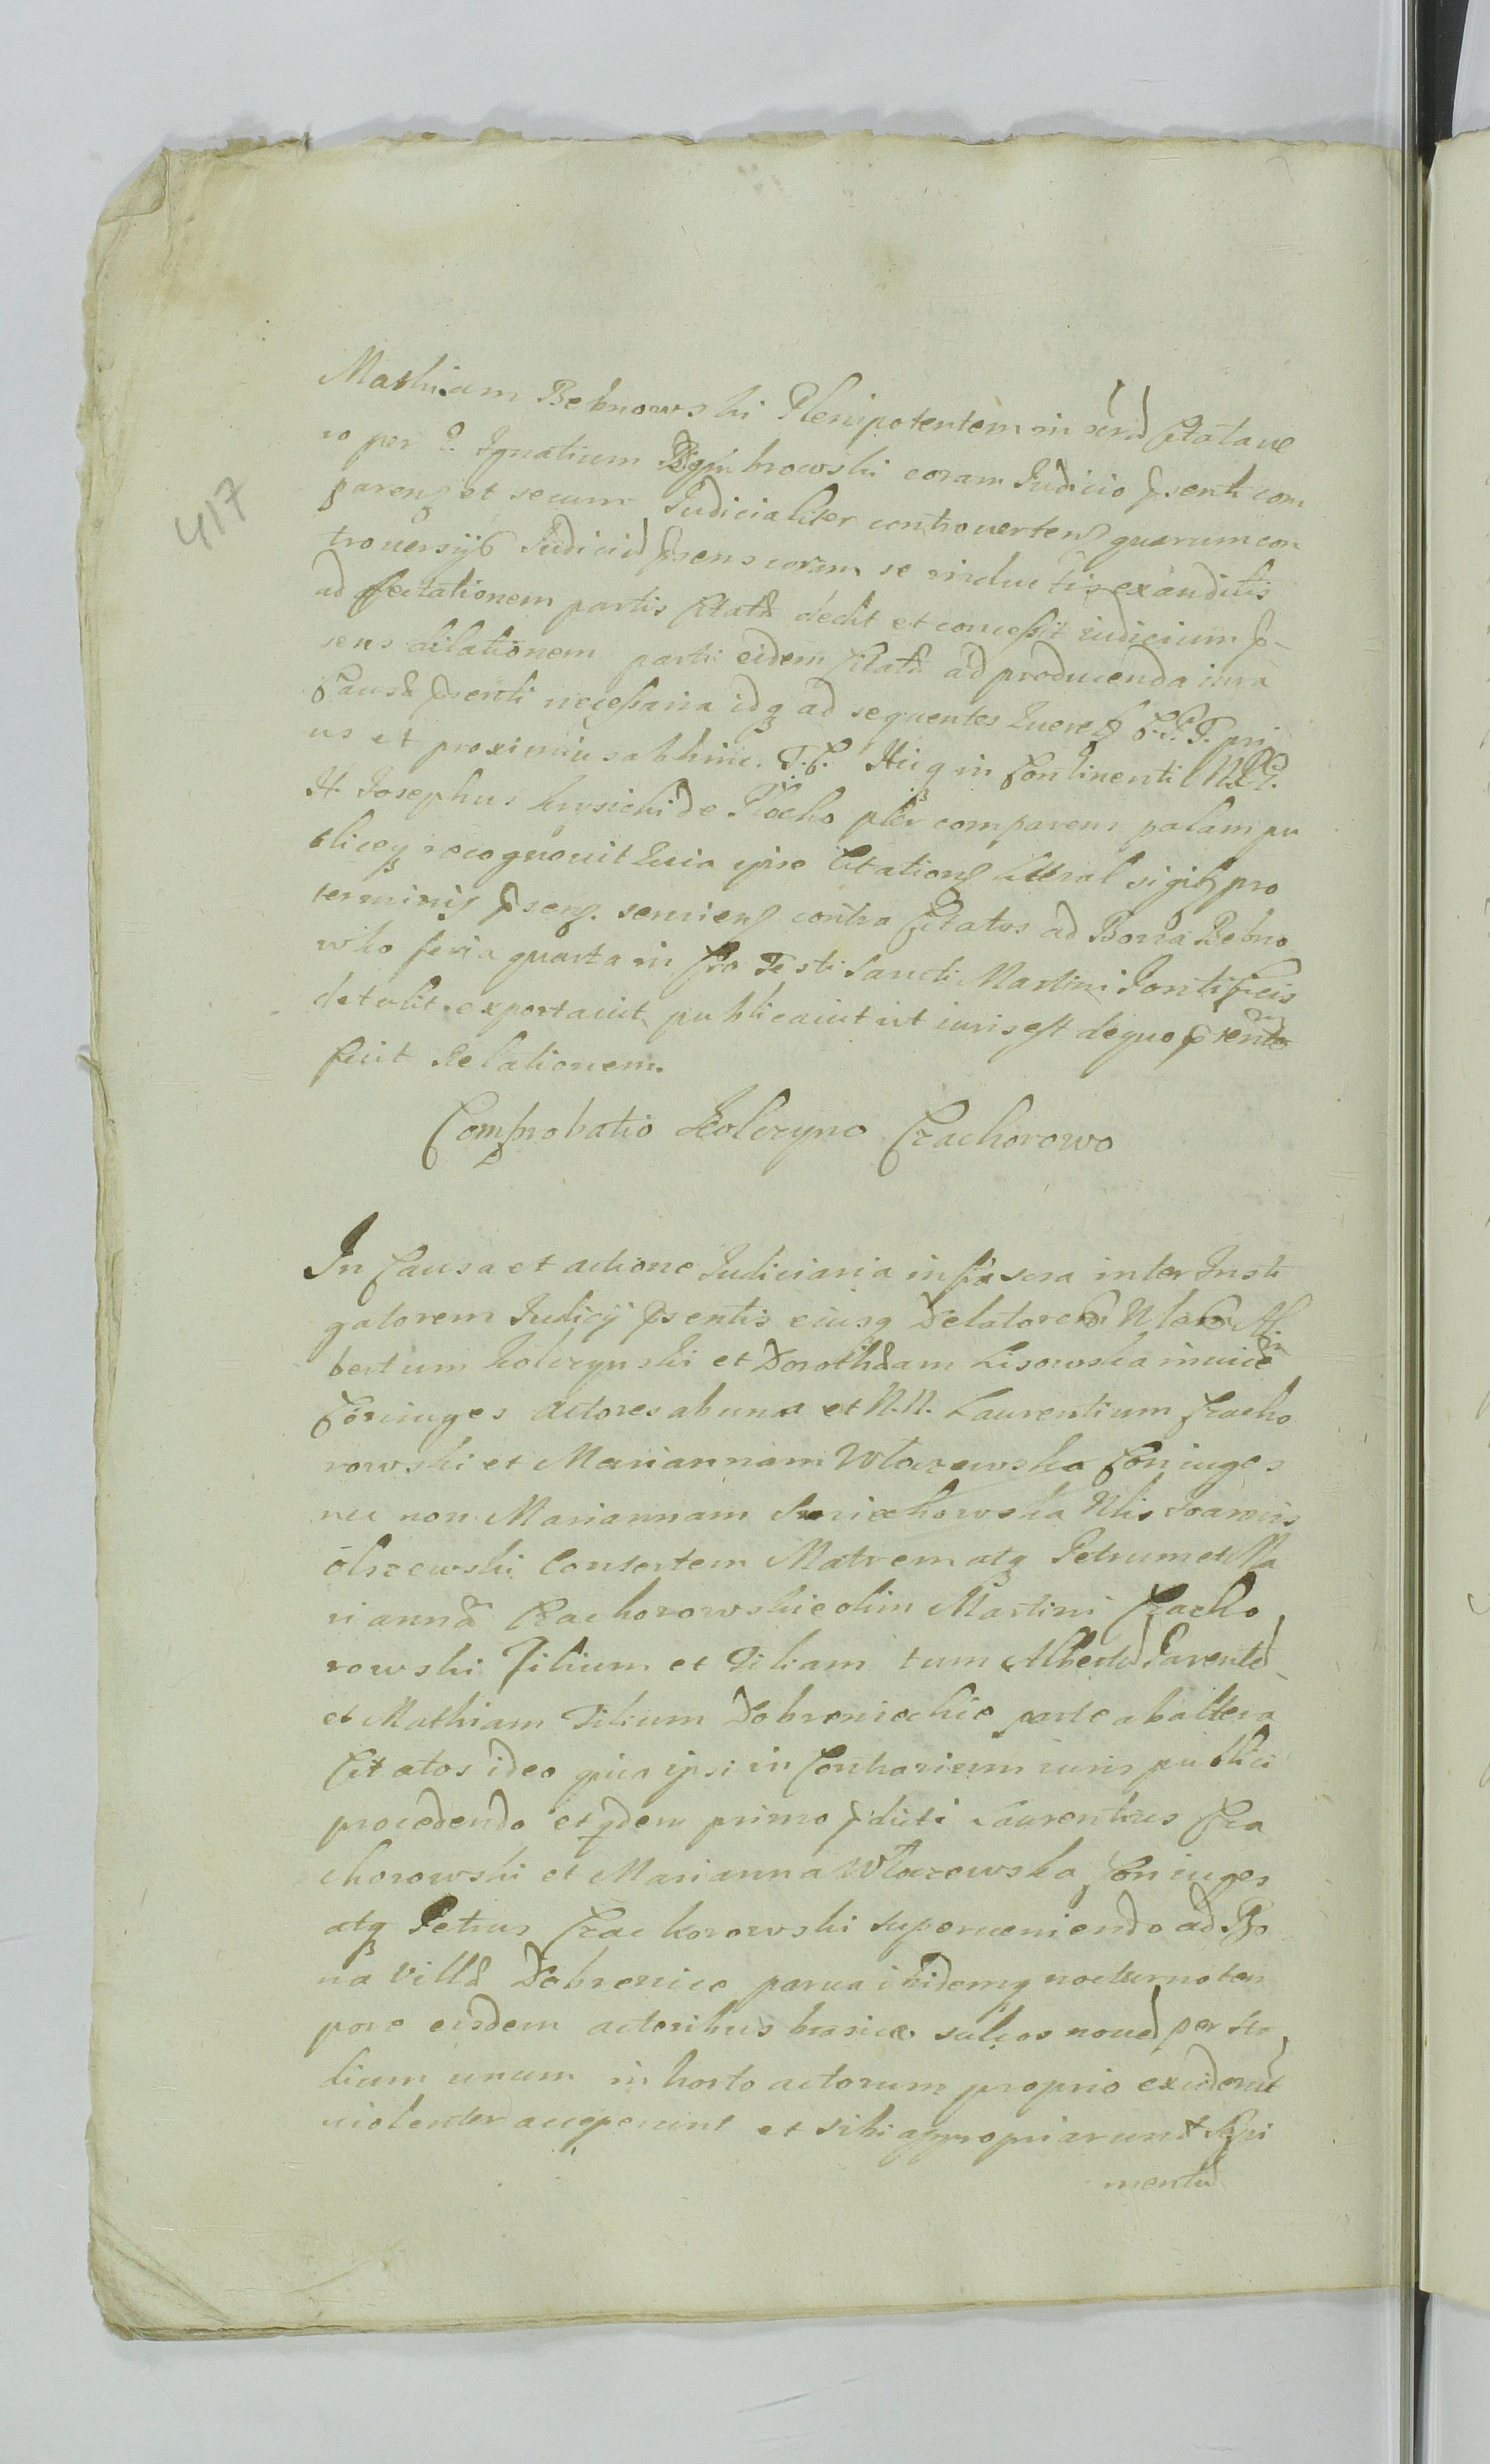 417
Mathiam Bebnowski Plenipotentem in rend Citata ve
ro per G. Ignatium coram Judicio psenti com
parens et secum Judicialiter controvertens quarum con
troversijs Judiciu psens coram se inductis exauditis
ad afectationem partis Citata dedit et concessit iudicium p-
sens dilationem parti eidem Citata ad producenda iura
Causa psenti necessaria idq ad sequentes C.T. pri
us et proximius abhinc. T.C. Hicq in Continenti
H Josephus de Płocko pltr comparens palam pu
bliceq recognovit Quia ipse Citations literal sigil pro
terminis psens. serviens contra Citatos ad Bona Bebno
wko feria quarta in Cro Festi Sancti Martini Pontificis
detulit exportavit publicavit ut iuris est de quo psente
fecit Relationem.
Comprobatio Kolczyno Czachorowo
In Causa et actione Judiciaria infra scra inter Insti
gatorem Judicij psentis eiusq Delatores Al
bertum Kolczynski et Dorotheam Lisowska invice
Coniuges Actores ab una et N.N. Laurentium Czacho
rowski et Mariannam Włoczewska Coniuges
nec non Mariannam Nlis Joannis
Olszewski Consortem Matrem atq Petrum et Ma
rianna Czachorowskie olim Martini Czacho
rowski Filium et Filiam tum Albertu Parente
et Mathiam Filium Dobrenieckie parte ab altera
Citatos ideo quia ipsi in Contrarium iuris publici
procedendo et qdem primo pdicti Laurentius Cza
chorowski et Marianna Włoczewska Coniuges
atq Petrus Czachorowski superveniendo ad Bo
na Villa Dobrenice parva ibidemq nocturno tem
pore eisdem actoribus brasice sulcos noue per sta
dium unum in horto actorum proprio exciderut
violenter acceperunt et sibi appropriarunt Sepi
mentu